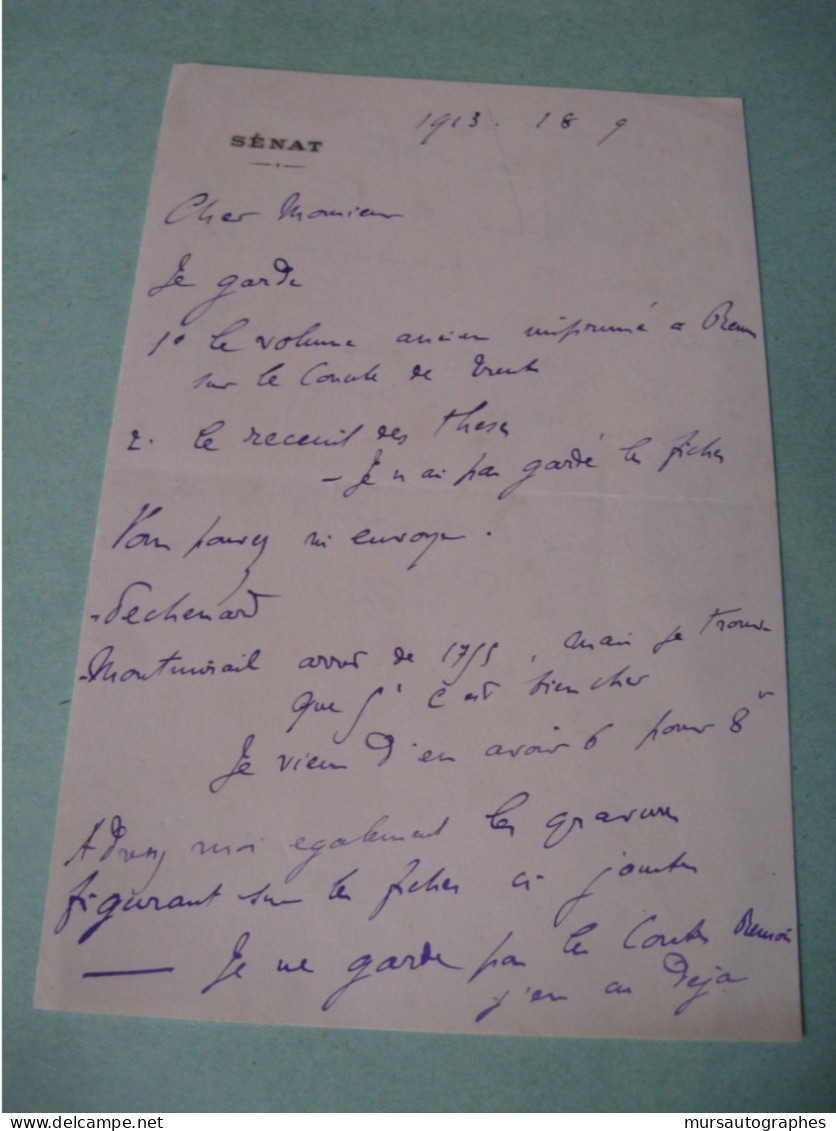 SÉNAT
1913. 18 9
Cher Monsieur
Je garde
1° le volume ancien imprimé a Reims
sur le Concile de Trente
2. le receuil des theses
- Je n'ai pas gardé les fiches
Vous pouvez m'envoyer.
- Pechenard
- Montmirail arret de 1755, mais je trouve
que 5f c'est bien cher
Je viens d'en avoir 6 pour 8
Adressez moi egalement les gravures
figurant sur les fiches ci jointes
— Je ne garde pas les Contes Remois
j'en ai Deja
mursautographes